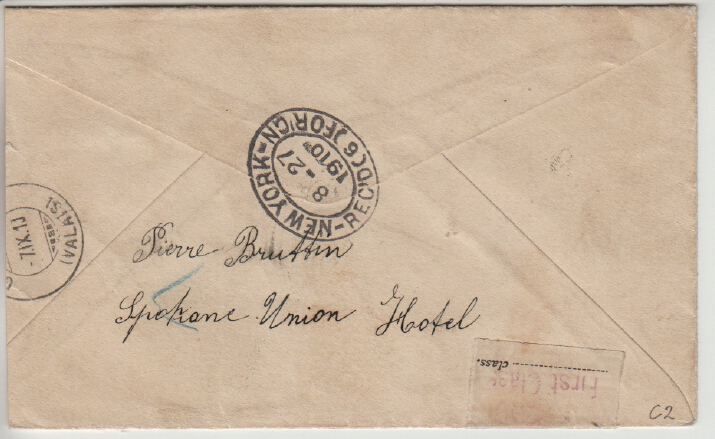 NEW YORK - REC'D (6) FOR'GN -
8 - 27
1910
(VALAIS)
-7.IX.1
Pierre Bruttin
Spokane Union Hotel
class.
First Class
C2